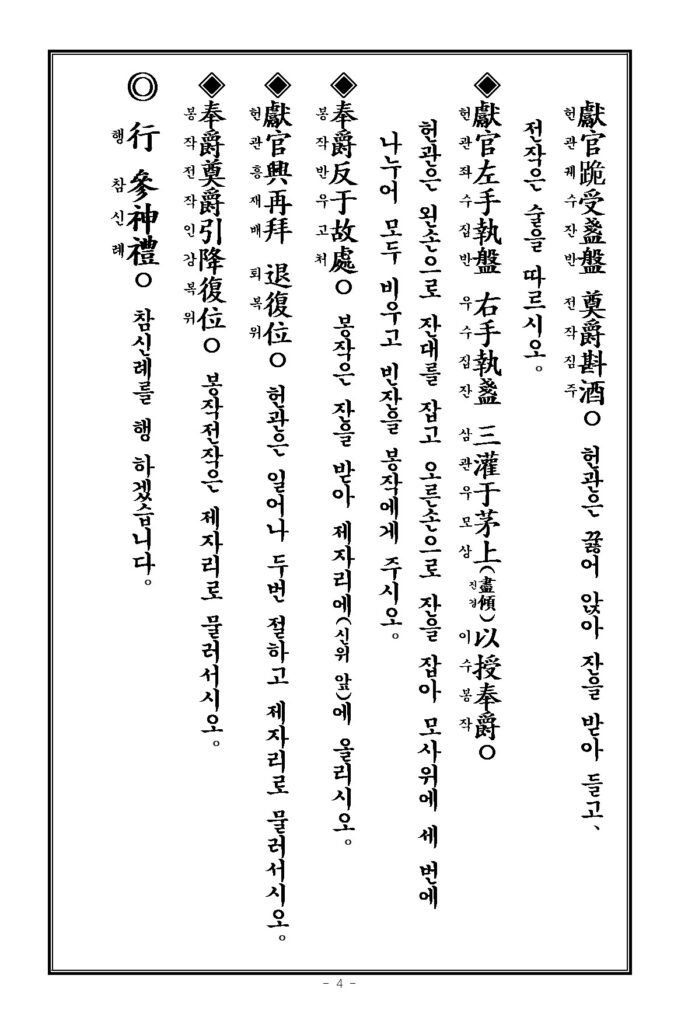 獻官跪受盞盤 奠爵斟酒○ 헌관은 꿇어 앉아 잔을 받아 들고、
헌관궤수잔반 전작짐주
전작은 술을 따르시오。
◈獻官左手執盤 右手執盞 三灌于茅上(盡傾)以授奉爵○
헌관좌수집반 우수집잔 삼관우모상 진경 이수봉작
헌관은 왼손으로 잔대를 잡고 오른손으로 잔을 잡아 모사위에 세 번에
나누어 모두 비우고 빈잔을 봉작에게 주시오。
◈奉爵反于故處○ 봉작은 잔을 받아 제자리에(신위 앞)에 올리시오。
봉작반우고처
◈獻官興再拜 退復位○ 헌관은 일어나 두번 절하고 제자리로 물러서시오。
헌관흥재배 퇴복위
◈奉爵奠爵引降復位○ 봉작전작은 제자리로 물러서시오。
봉작전작인강복위
◎ 行 參神禮○ 참신례를 행 하겠습니다。
행 참신례
- 4 -